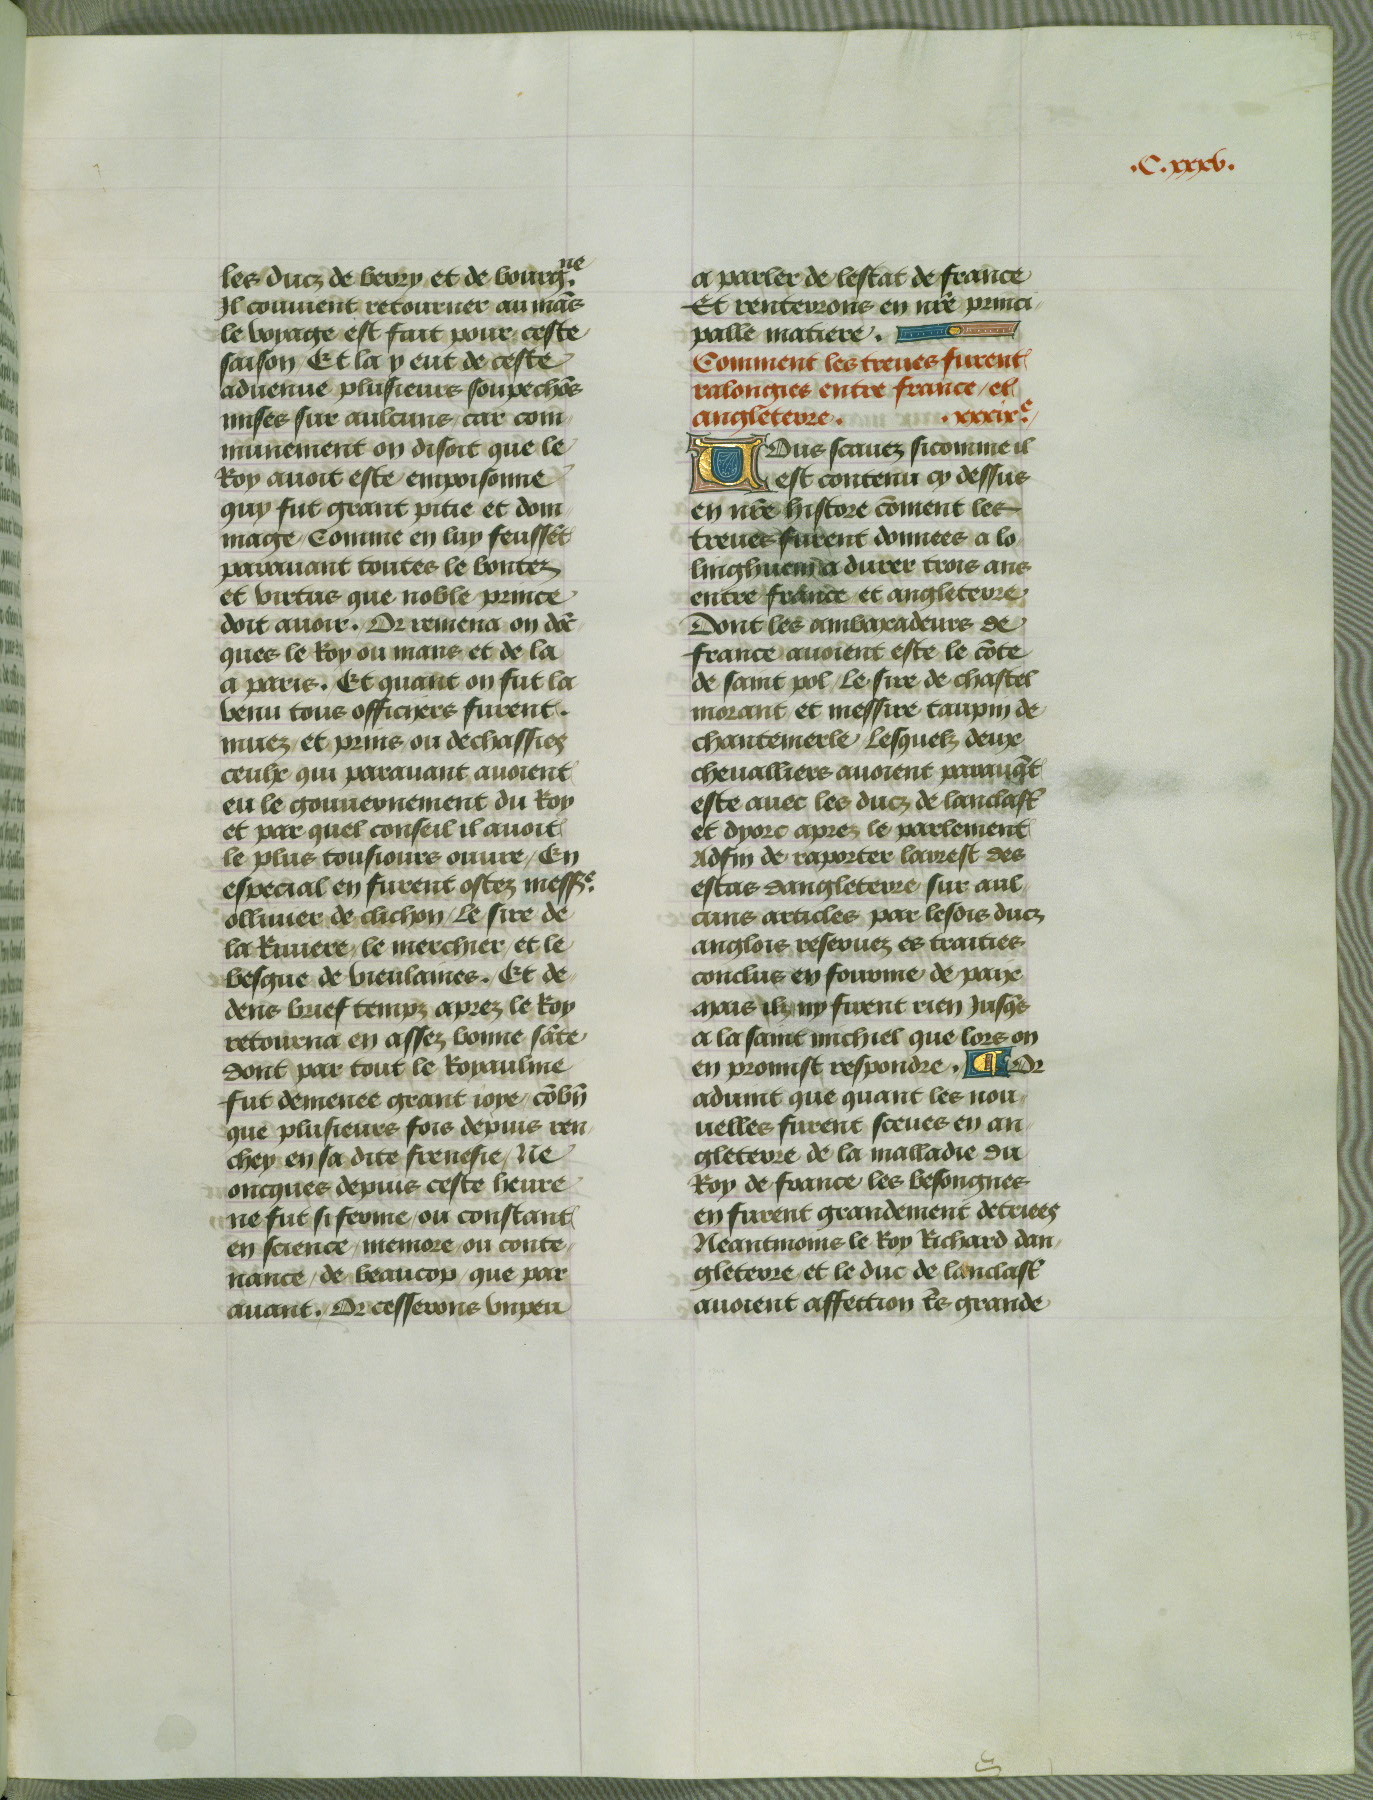 .C.xxxv.
les ducz de berry et de bourg.ne
Il conuient retourner au mãs
le voyage est fait pour ceste
saison Et la y eut de ceste
aduenue plusieurs soupechõs
mises sur aulcuns car com
munement on disoit que le
Roy auoit este empoisonne
quy fut grant pitie et dom
mage Comme en luy feussẽt
parauant toutes le bontez
et virtus que noble prince
doit auoir. Or remena on dõc
ques le Roy ou mans et de la
a paris. Et quant on fut la
venu tous officyers furent.
muez et prins ou dechassies
ceulx qui parauant auoient
eu le gouuernement du Roy
et par quel conseil il auoit
le plus tousiours ouure / En
especial en furent ostez mess.e
ollivuier de clichon / Le sire de
la Riuiere / le merchier / et le
besgue de vieulaines. Et de
dens brief temps aprez le Roy
retourna en assez bonne sãte
dont par tout le Royaulme
fut demenee grant ioye / cõbiẽ
que plusieurs fois depuis ren
chey en sa dite frenesie / Ne
oncques depuis ceste heure
ne fut si ferme / ou constant
en science / memore / ou conte
nance / de beaucop / que par
auant. Or cesserons vnpeu
a parler de lestat de france
Et renterrons en nr̃e princi
palle matiere.
Comment les treues furent
ralongies entre france / et
angleterre. .xxxix.e
Vous scauez sicomme il
est contenu cy dessus
en nr̃e histore cõment les
treues furent donnees a lo
linghuem a durer trois ans
entre france et angleterre
Dont les ambaxadeurs de
france auoient este le cõte
de saint pol / Le sire de chastel
morant et messire taupin de
chantemerle / Lesquelz deux
cheualliers auoient parauãt
este auec les ducz de lanclast̃
et dyorc aprez le parlement
Adfin de raporter larrest des
estas dangleterre / sur aul
cuns articles par lesdis ducz
anglois reseruez es traities
conclus en fourme de paix
Mais ilz ny firent rien Jusq̃s
a la saint michiel que lors on
en promist respondre. ¶ Or
aduint que quant les nou
uelles furent sceues en an
gleterre de la malladie du
Roy de france les besongnes
en furent grandement detriees
Neantmoins le Roy Richard dan
gleterre et le duc de lanclast̃
auoient affection tr̃s grande